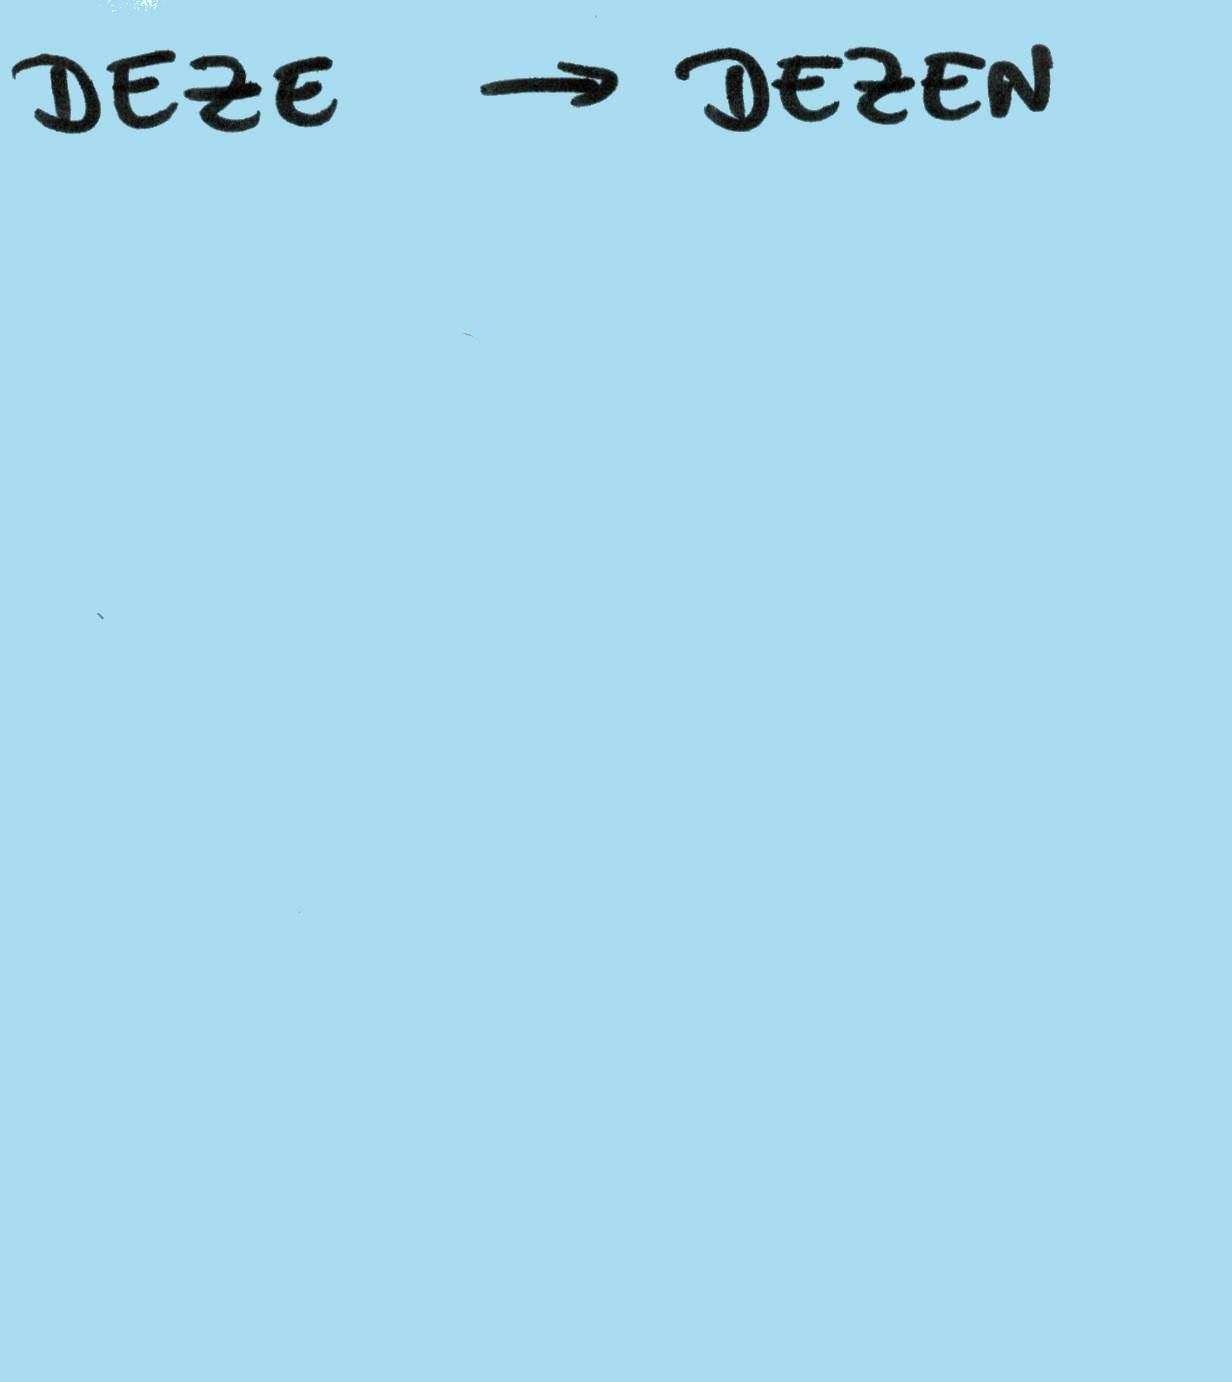 DEZE → DEZEN